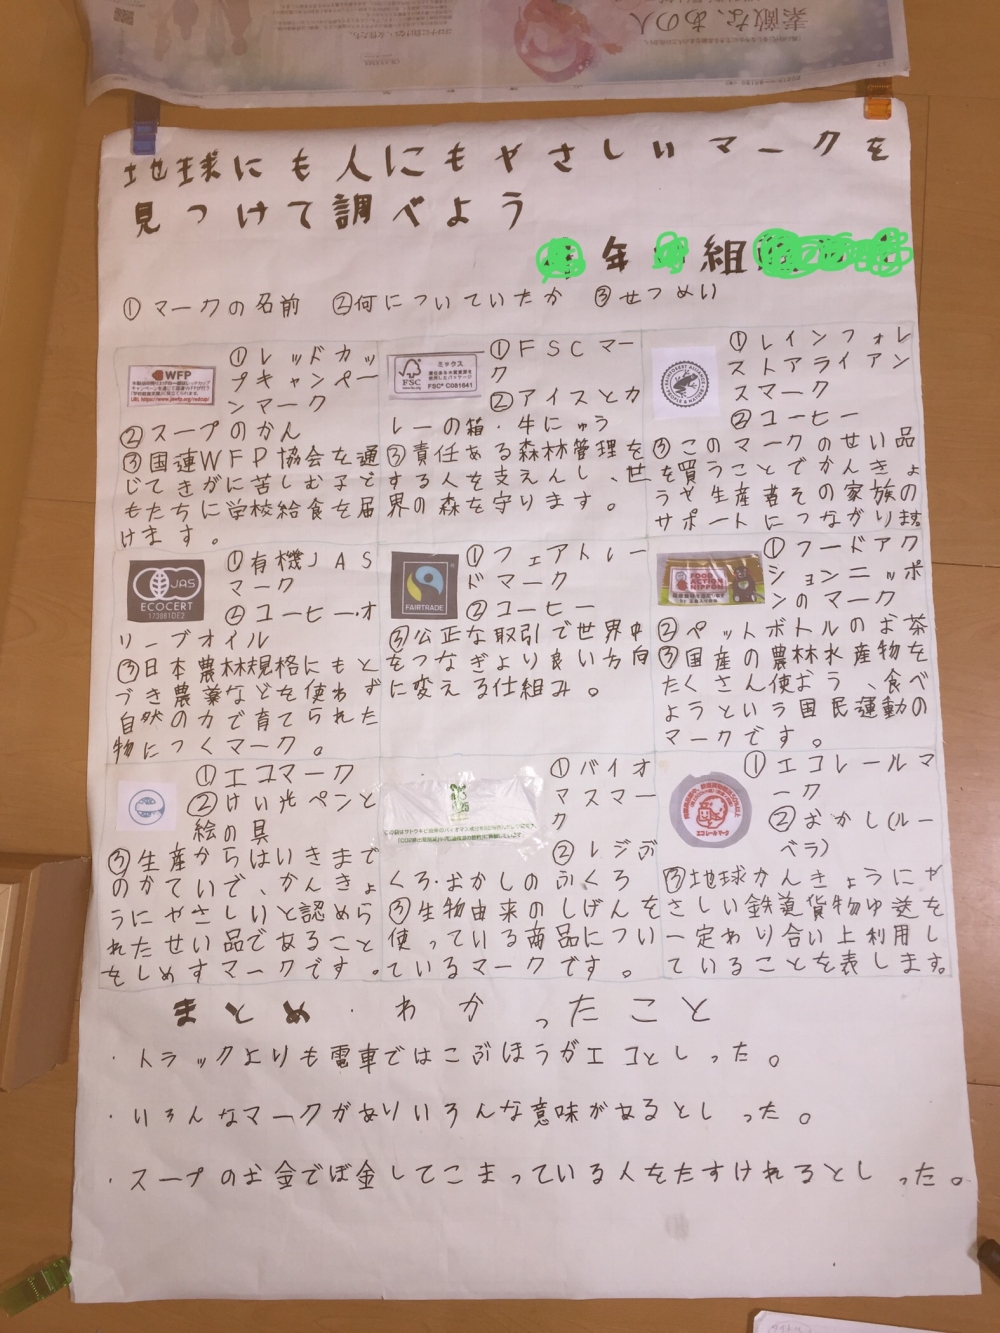 素敵な、あの人
地球にも人にもやさしいマークを
見つけて調べよう
年 組
①マークの名前 ②何についていたか ③せつめい
WFP
①レッドカッ
プキャンペー
ンマーク
②スープのかん
③国連WFP協会を通
じてきがに苦しむ子ど
もたちに学校給食を届
けます。
FSC
ミックス
FSC® C081641
①FSCマー
ク
②アイスとカ
レーの箱・牛にゅう
③責任ある森林管理を
する人を支えんし、世
界の森を守ります。
RAINFOREST ALLIANCE
PEOPLE & NATURE
①レインフォレ
ストアライアン
スマーク
②コーヒー
③このマークのせい品
を買うことでかんきょ
うや生産者その家族の
サポートにつながります
JAS
ECOCERT
①有機JAS
マーク
②コーヒー・オ
リーブオイル
③日本農林規格にもと
づき農薬などを使わず
自然の力で育てられた
物につくマーク。
FAIRTRADE
①フェアトレー
ドマーク
②コーヒー
③公正な取引で世界中
をつなぎより良い方向
に変える仕組み。
FOOD
ACTION
NIPPON
①フードアク
ションニッポ
ンのマーク
②ペットボトルのお茶
③国産の農林水産物を
たくさん使おう、食べ
ようという国民運動の
マークです。
①エコマーク
②けい光ペンと
絵の具
③生産からはいきまで
のかていで、かんきょ
うにやさしいと認めら
れたせい品であること
をしめすマークです。
①バイオ
マスマー
ク
②レジぶ
くろ・おかしのふくろ
③生物由来のしげんを
使っている商品につい
ているマークです。
エコレールマーク
①エコレールマ
ーク
②おかし(ルー
ベラ)
③地球かんきょうにや
さしい鉄道貨物ゆ送を
一定わり合い上利用し
ていることを表します。
まとめ・わかったこと
・トラックよりも電車ではこぶほうがエコとしった。
・いろんなマークがありいろんな意味があるとしった。
・スープのお金でぼ金してこまっている人をたすけれるとしった。